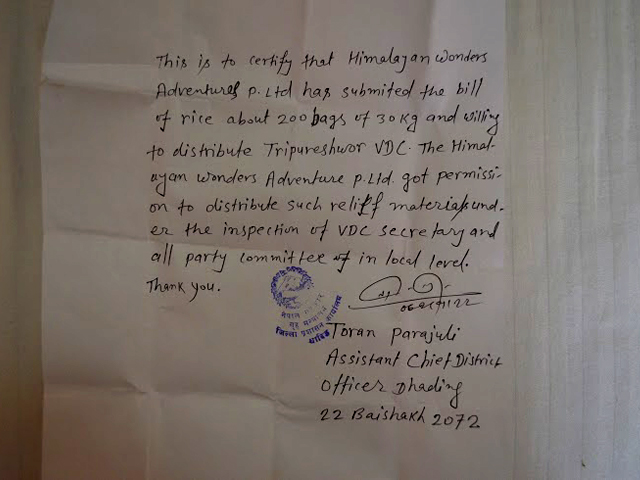 This is to certify that Himalayan wonders
Adventures P. Ltd has submited the bill
of rice about 200 bags of 30 Kg and willing
to distribute Tripureshwor VDC. The Himal-
ayan wonders Adventure P.Ltd. got permissi-
on to distribute such reliff materials und-
er the inspection of VDC secretary and
all party committee of in local level.
Thank you.
गृह मन्त्रालय
जिल्ला प्रशासन कार्यालय
धादिङ
Toran Parajuli
Assistant Chief District
Officer Dhading
22 Baishakh 2072